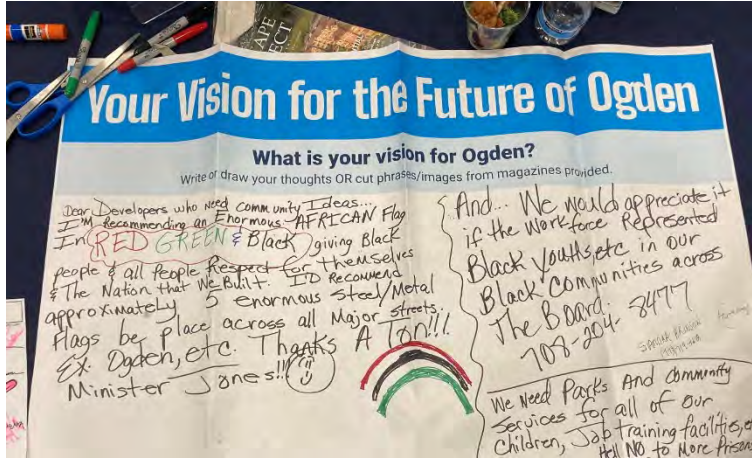 APE
ECT
Your Vision for the Future of Ogden
What is your vision for Ogden?
Write or draw your thoughts OR cut phrases/images from magazines provided.
Dear Developers who need community Ideas...
I'm Recommending an Enormous: AFRICAN Flag
In RED GREEN & Black giving Black
people & all People Respect for themselves
& The Nation that We Built. I'D Recommend
approximately 5 enormous Steel/Metal
Flags be Place across all Major streets.
Ex. Ogden, etc. Thanks A Ton!!!
Minister Jones!!!
And... We would appreciate it
if the Workforce Represented
Black youths, etc in our
Black Communities across
The Board.
708-204-8477
We Need Parks And Community
Services for all of our
Children, Job training facilities, e
Hell NO to More Prisons